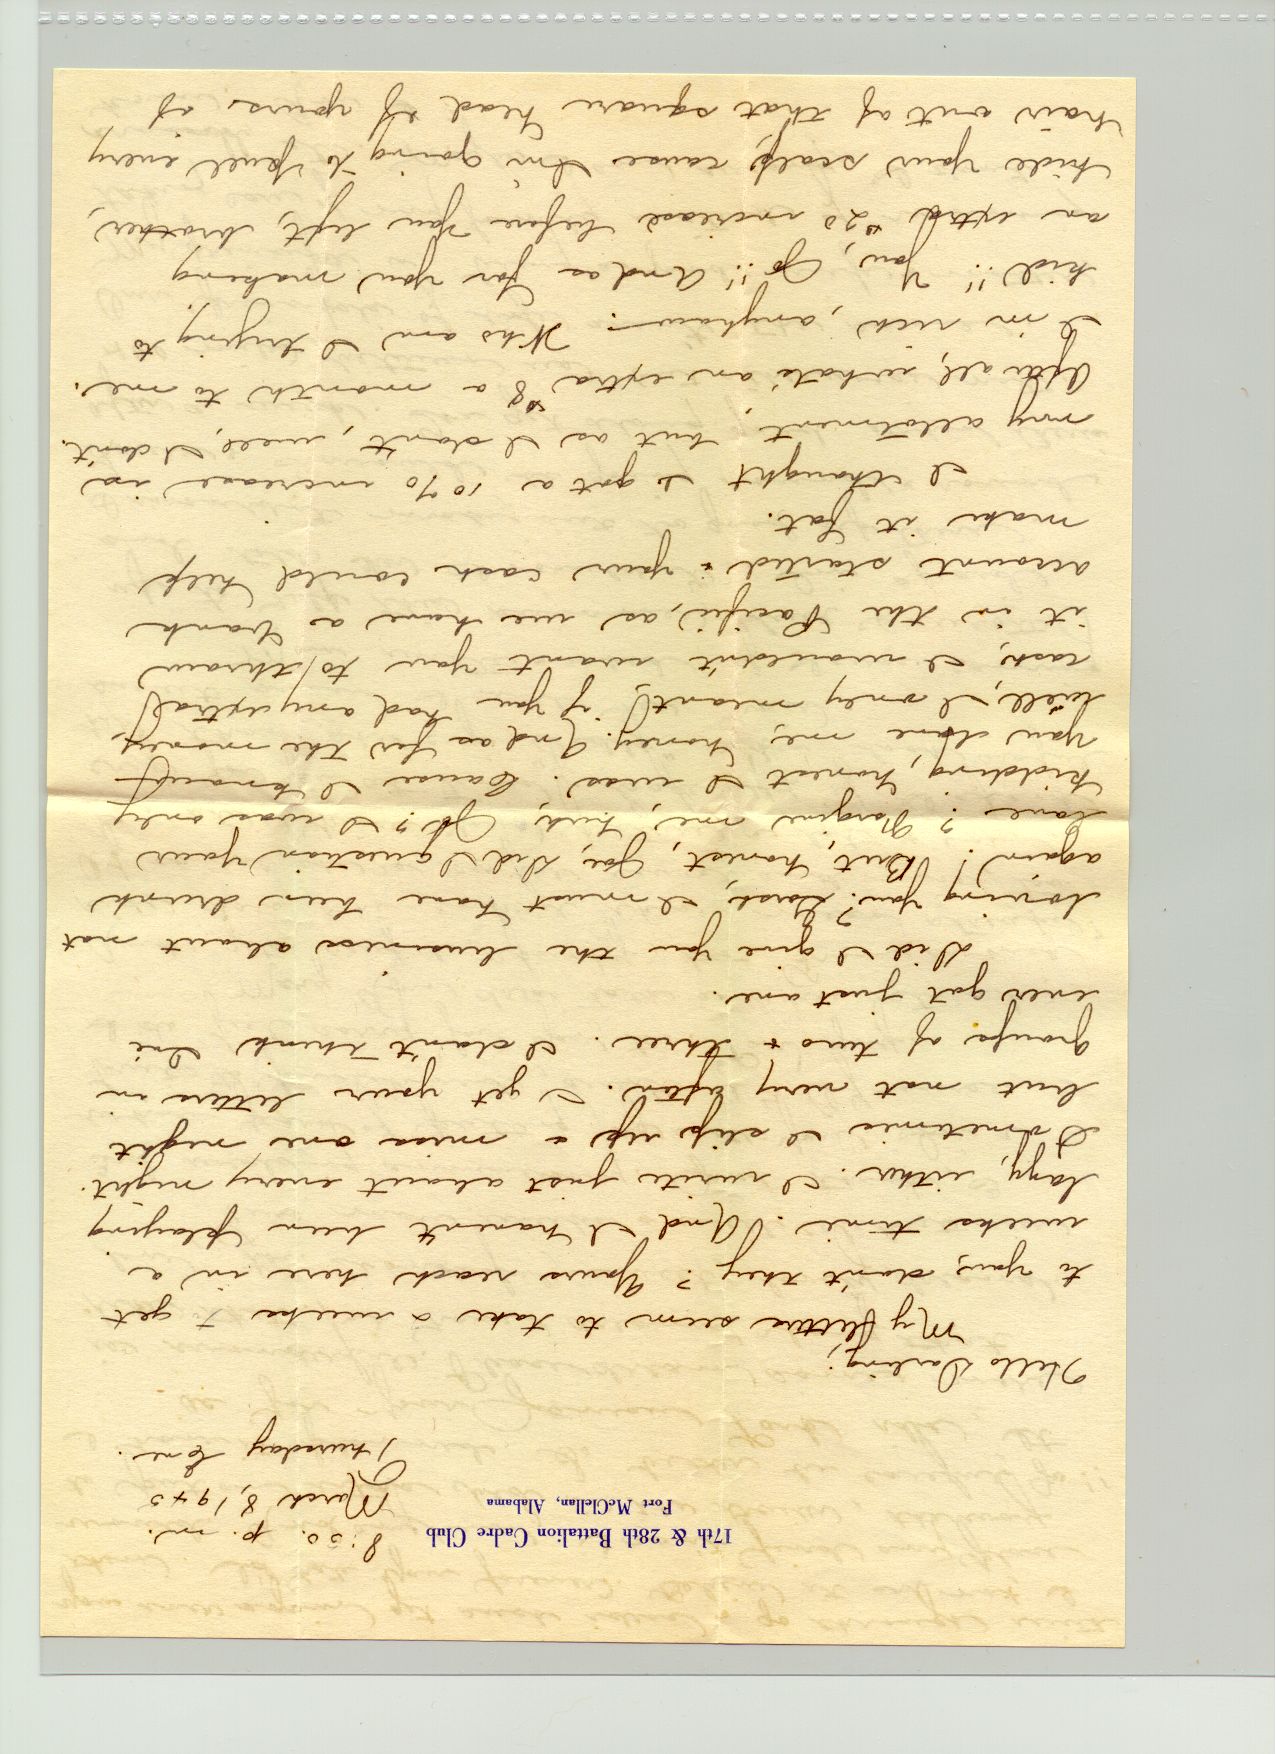 17th & 28th Battalion Cadre Club
Fort McClellan, Alabama
8:50 p. m.
March 8, 1945
Thursday Eve.
Hello Darling;
My letters seem to take a weeks to get
to you, don't they? Yours reach here in a
weeks time. And I haven't been playing
lazy, either. I write just about every night.
Sometimes I slip up & miss one night
but not very often. I get your letters in
groups of two & three. I don't think I've
ever got just one.
Did I give you the business about not
loving you? Gosh, I must have been drunk
again! But, honest, Joe, did I question your
love? Forgive me, huh, Jo? I was only
kidding, honest I was. Cause I know
you love me, honey. And as for the money
Well, I only meant if you had any extra
cash, I wouldn't want you to throw
it in the Pacific, as we have a bank
account started & your cash could help
make it fat.
I thought I got a 10% increase in
my allotment, but as I don't, well, I don't.
After all, what's an extra $8 a month to me.
I'm rich, anyhow. Who am I trying to
kid!! You, Jo!! And as for you making
an extra $20 increase before you left, brother,
hide your scalp, cause I'm going to pull every
hair out of that square head of yours if